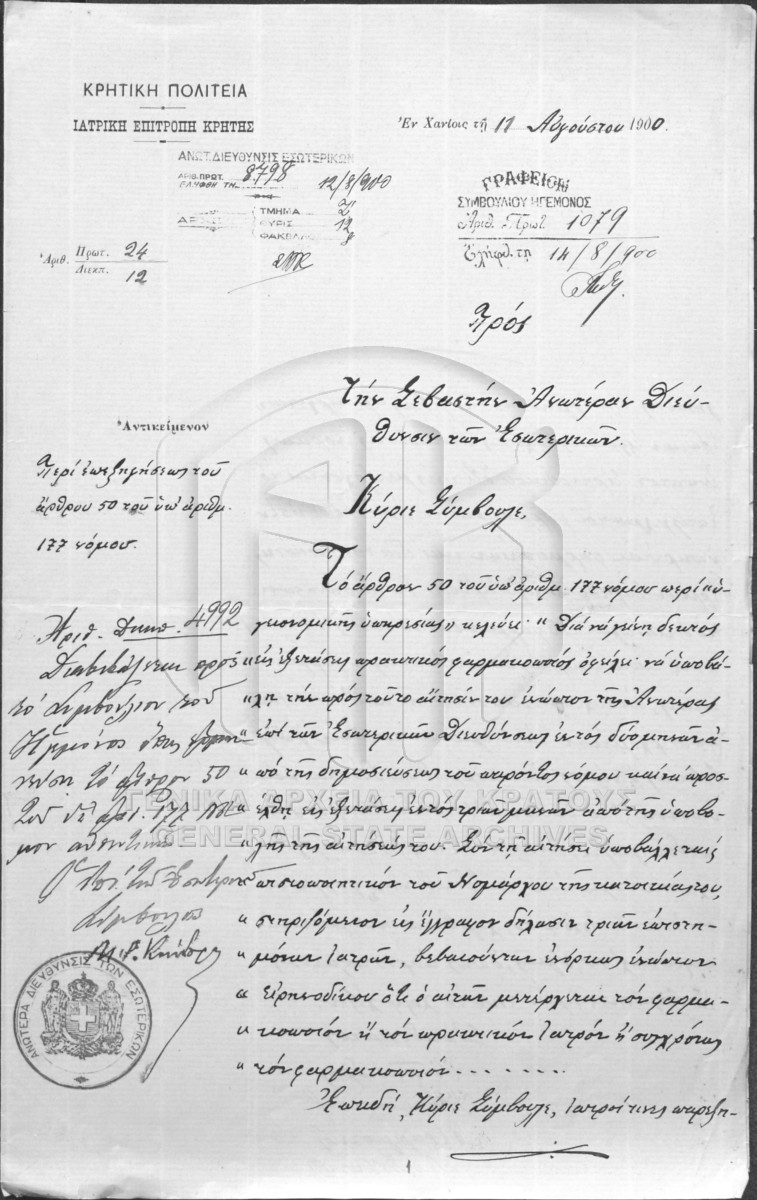 ΚΡΗΤΙΚΗ ΠΟΛΙΤΕΙΑ
ΙΑΤΡΙΚΗ ΕΠΙΤΡΟΠΗ ΚΡΗΤΗΣ
Ἐν Χανίοις τῇ 11 Αὐγούστου 1900.
ΑΝΩΤ. ΔΙΕΥΘΥΝΣΙΣ ΕΣΩΤΕΡΙΚΩΝ
ΑΡΙΘ. ΠΡΩΤ. 8798
ΕΛΗΦΘΗ ΤΗ 12/8/900
ΤΜΗΜΑ 2
12
ΦΑΚΕΛ 8
ΓΡΑΦΕΙΟΝ
ΣΥΜΒΟΥΛΙΟΥ ΗΓΕΜΟΝΟΣ
Ἀριθ. Πρωτ. 1079
Ἐλήφθ. τῇ 14/8/900
Ἀριθ. Πρωτ. 24
Διεκπ. 12
Πρός
Τὴν Σεβαστὴν Ἀνωτέραν Διεύ-
θυνσιν τῶν Ἐσωτερικῶν.
Ἀντικείμενον
Περὶ ἐπεξηγήσεως τοῦ
ἄρθρου 50 τοῦ ὑπ' ἀριθμ.
177 νόμου.
Κύριε Σύμβουλε,
Τὸ ἄρθρον 50 τοῦ ὑπ' ἀριθμ. 177 νόμου περὶ ὑ-
γειονομικῆς ὑπηρεσίας» κελεύει· " Διὰ νὰ γείνῃ δεκτὸς
" εἰς ἐξετάσεις πρακτικὸς φαρμακοποιὸς ὀφείλει νὰ ὑποβά-
" λῃ τὴν πρὸς τοῦτο αἴτησίν του ἐνώπιον τῆς Ἀνωτέρας
" ἐπὶ τῶν Ἐσωτερικῶν Διευθύνσεως ἐντὸς δύο μηνῶν ἀ-
" πὸ τῆς δημοσιεύσεως τοῦ παρόντος νόμου καὶ νὰ προσ-
" έλθῃ εἰς ἐξετάσεις ἐντὸς τριῶν μηνῶν ἀπὸ τῆς ὑποβο-
" λῆς τῆς αἰτήσεώς του. Σὺν τῇ αἰτήσει ὑποβάλλεται
" πιστοποιητικὸν τοῦ Νομάρχου τῆς κατοικίας του,
" στηριζόμενον εἰς ἔγγραφον δήλωσιν τριῶν ἐπιστη-
" μόνων ἰατρῶν, βεβαιούντων ἐνόρκως ἐνώπιον
" Εἰρηνοδίκου ὅτι ὁ αἰτῶν μετέρχεται τὸν φαρμα-
" κοποιὸν ἢ τὸν πρακτικὸν ἰατρὸν ἢ συγχρόνως
" τὸν φαρμακοποιὸν . . . . . . .
Ἐπειδή, Κύριε Σύμβουλε, ἰατροί τινες παρεξη-
Ἀριθ. Διεκπ. 4992
Διαβιβάζεται πρὸς
τὸ Συμβούλιον τοῦ
Ἡγεμόνος ὅπως
τὸ ἄρθρον 50
τοῦ ὑπ' ἀρ. 177
Ὁ ἐπὶ τῶν Ἐσωτερικῶν
Σύμβουλος
ΑΝΩΤΕΡΑ ΔΙΕΥΘΥΝΣΙΣ ΤΩΝ ΕΣΩΤΕΡΙΚΩΝ
ΓΕΝΙΚΑ ΑΡΧΕΙΑ ΤΟΥ ΚΡΑΤΟΥΣ
GENERAL STATE ARCHIVES
1